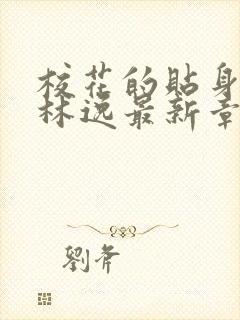 校花的貼身
林逸最新章
劉斧